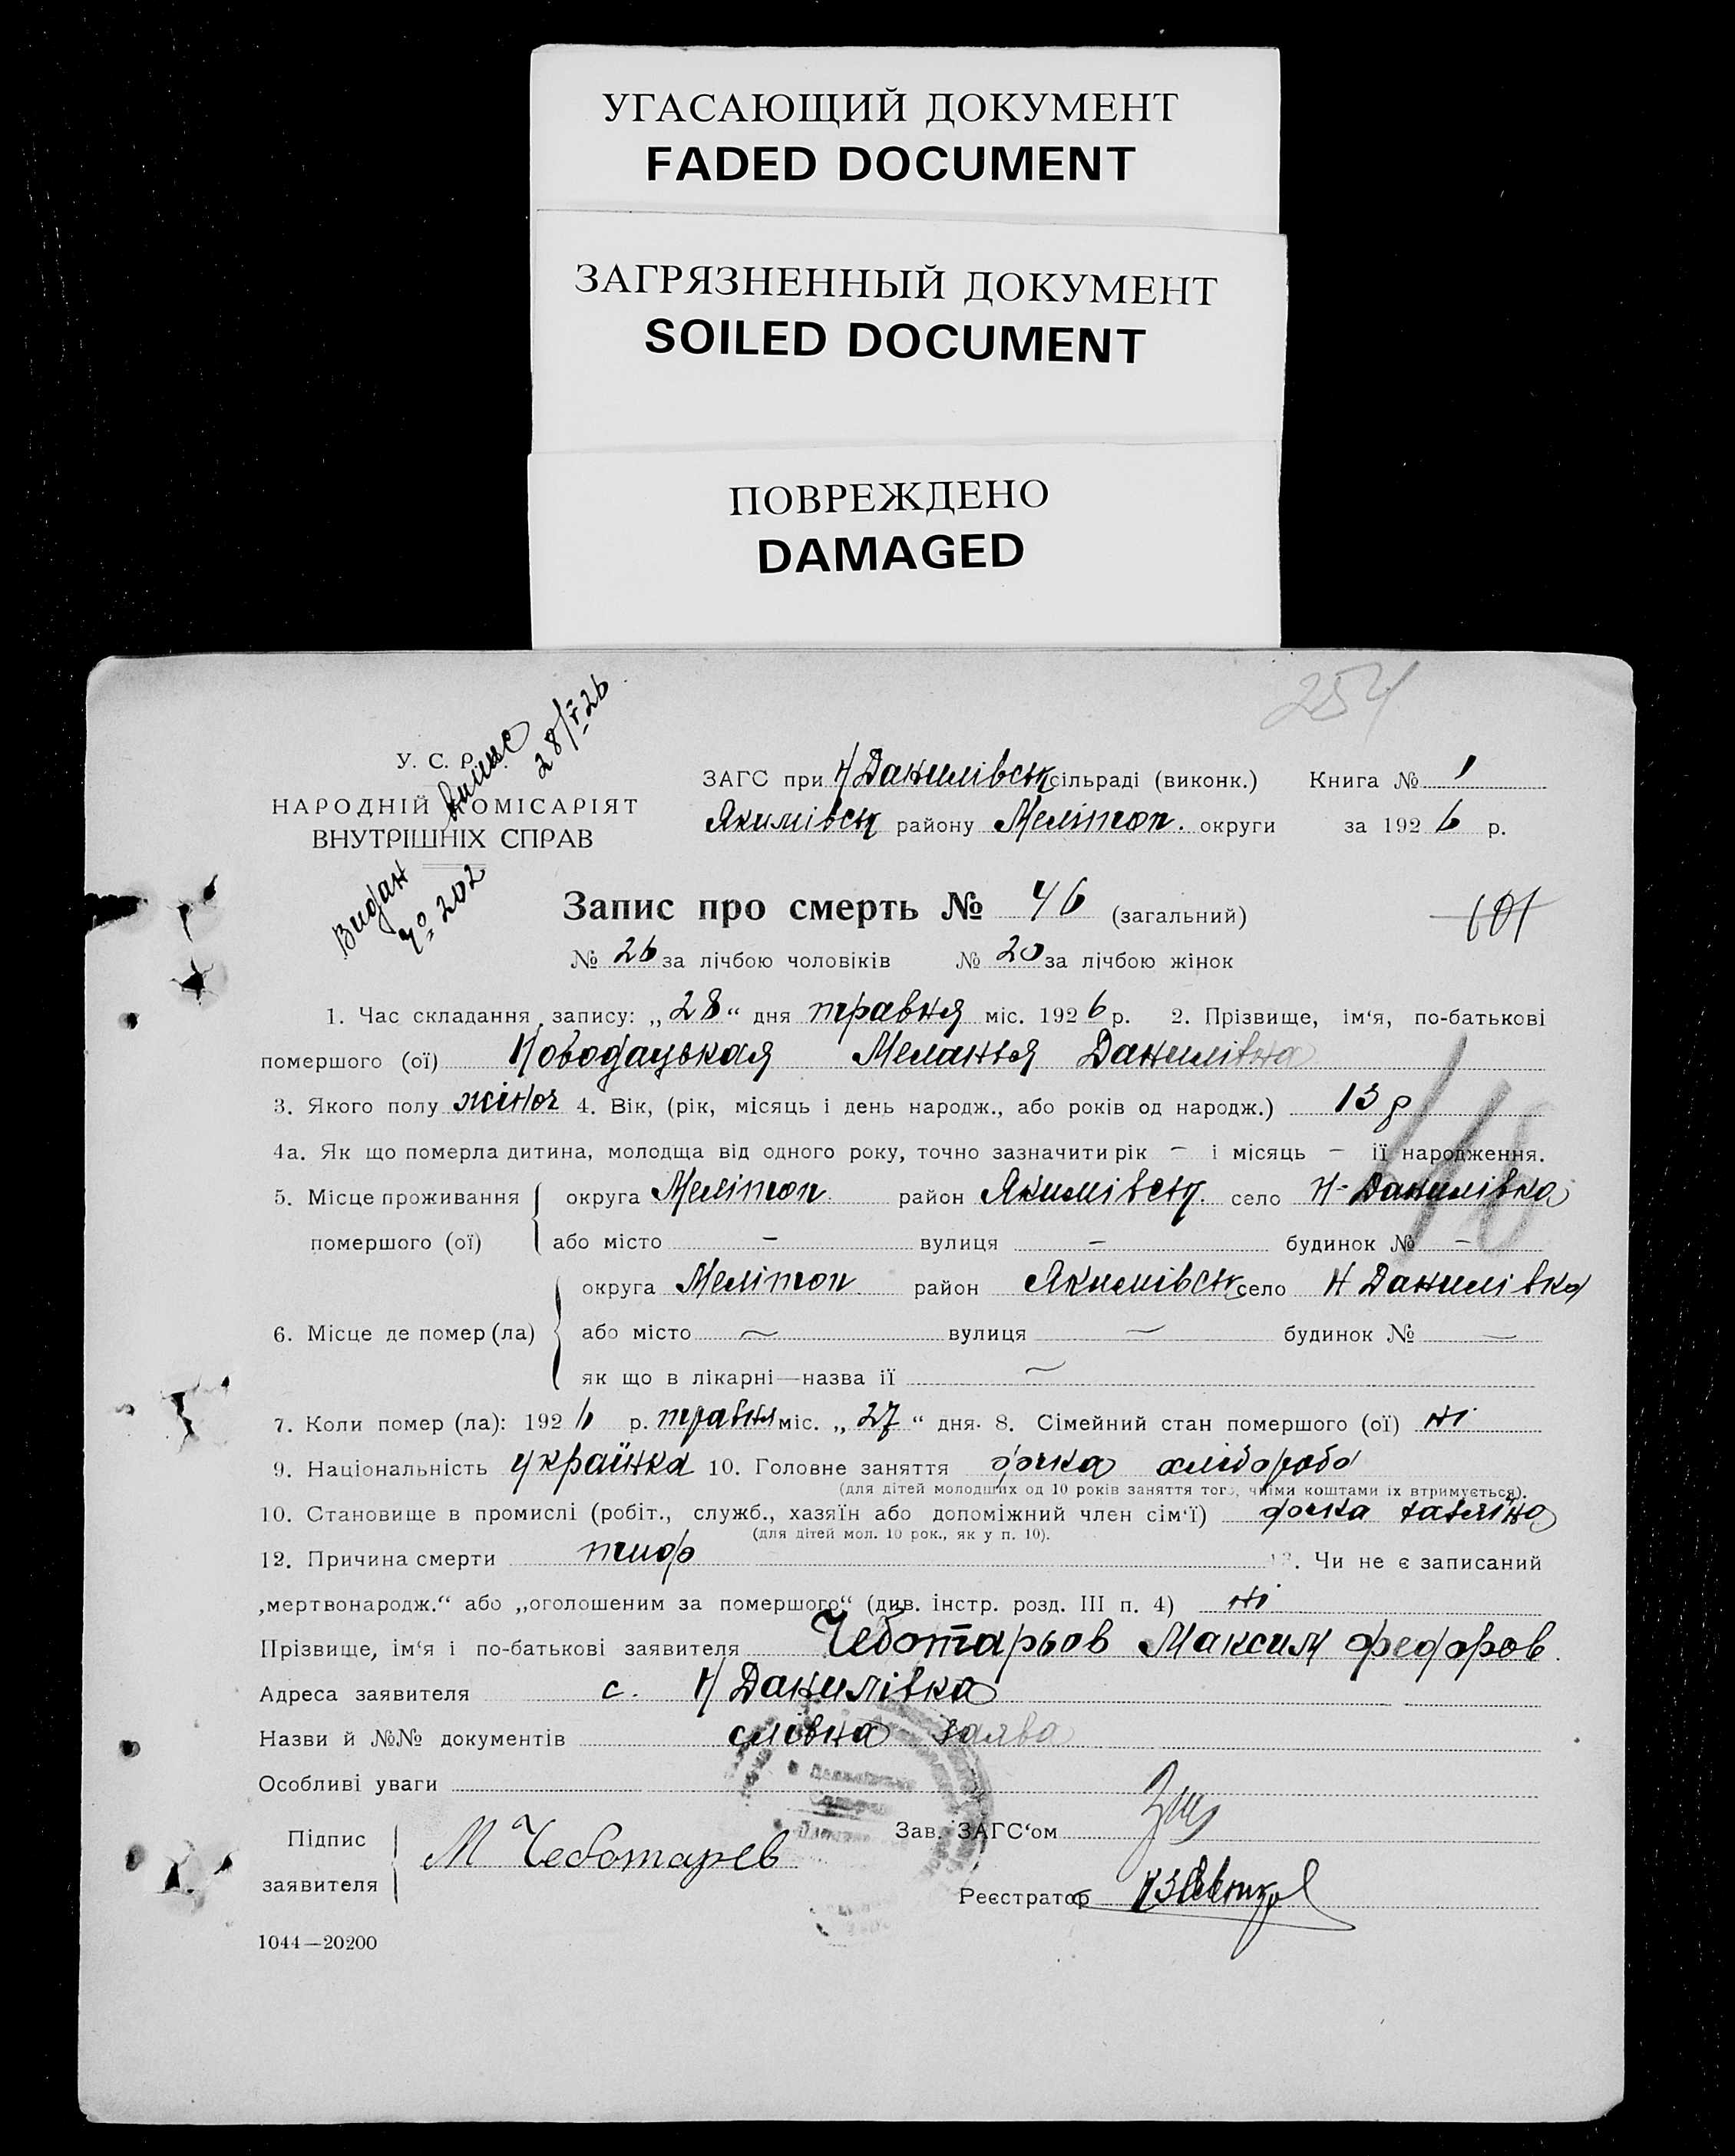 УГАСАЮЩИЙ ДОКУМЕНТ
FADED DOCUMENT
ЗАГРЯЗНЕННЫЙ ДОКУМЕНТ
SOILED DOCUMENT
ПОВРЕЖДЕНО
DAMAGED
254
Видан виписа
№ 202 28/V 26
У. С. Р. Р.
НАРОДНІЙ КОМІСАРІЯТ
ВНУТРІШНІХ СПРАВ
ЗАГС при Н Данилівськ сільраді (виконк.) Книга № 1
Якимівськ району Мелітоп. округи за 1926 р.
Запис про смерть № 46 (загальний)
101
№ 26 за лічбою чоловіків № 20 за лічбою жінок
1. Час складання запису: „28“ дня травня міс. 1926 р. 2. Прізвище, ім‘я, по-батькові
помершого (ої) Меланья Данилівна
3. Якого полу жіноч 4. Вік, (рік, місяць і день народж., або років од народж.) 13 р
4а. Як що померла дитина, молодща від одного року, точно зазначити рік – і місяць – її народження.
10
5. Місце проживання округа Мелітоп. район Якимівськ. село Н-Данилівка
помершого (ої) або місто – вулиця – будинок № –
округа Мелітоп район Якимівськ село Н Данилівка
6. Місце де помер (ла) або місто ~ вулиця ~ будинок № ~
як що в лікарні—назва її ~
7. Коли помер (ла): 1926 р. травня міс. „27“ дня. 8. Сімейний стан помершого (ої) ні
9. Національність українка 10. Головне заняття дочка хлібороба
(для дітей молодших од 10 років заняття того, чиїми коштами їх втримується).
10. Становище в промислі (робіт., служб., хазяїн або допоміжний член сім‘ї) дочка хазяїна
(для дітей мол. 10 рок., як у п. 10).
12. Причина смерти тиф 13. Чи не є записаний
„мертвонародж.“ або „оголошеним за помершого“ (див. інстр. розд. III п. 4) ні
Прізвище, ім‘я і по-батькові заявителя Чеботарьов Максим Федоров.
Адреса заявителя с. Н Данилівка
Назви й №№ документів словна заява
Особливі уваги
Підпис
заявителя М Чеботарев
Зав. ЗАГС‘ом
Реєстратор
1044—20200